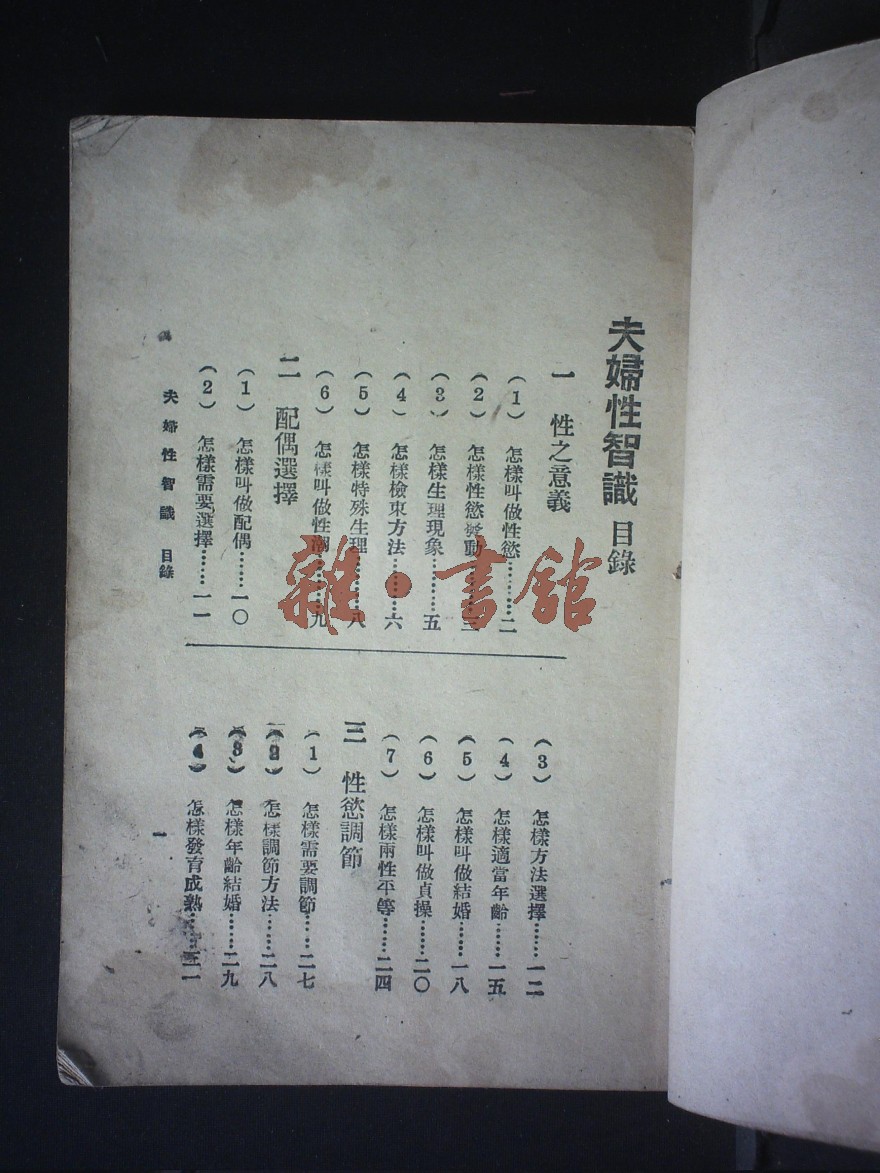 夫婦性智識 目錄
一 性之意義
(1) 怎樣叫做性慾………二
(2) 怎樣性慾衝動………三
(3) 怎樣生理現象………五
(4) 怎樣檢束方法………六
(5) 怎樣特殊生理………八
(6) 怎樣叫做性潮………九
二 配偶選擇
(1) 怎樣叫做配偶………一〇
(2) 怎樣需要選擇………一一
(3) 怎樣方法選擇………一二
(4) 怎樣適當年齡………一五
(5) 怎樣叫做結婚………一八
(6) 怎樣叫做貞操………二〇
(7) 怎樣兩性平等………二四
三 性慾調節
(1) 怎樣需要調節………二七
(2) 怎樣調節方法………二八
(3) 怎樣年齡結婚………二九
(4) 怎樣發育成熟………
夫婦性智識 目錄
一
雜·書館